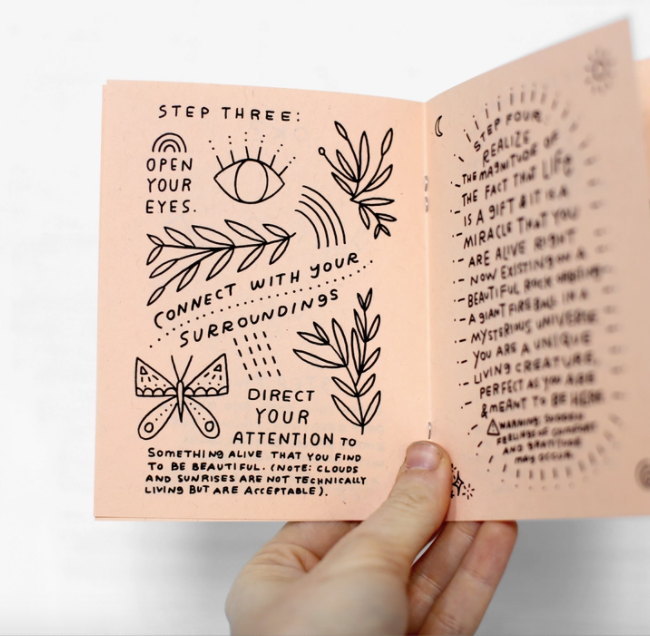 STEP THREE:
OPEN
YOUR
EYES.
CONNECT WITH YOUR
SURROUNDINGS
DIRECT
YOUR
ATTENTION TO
SOMETHING ALIVE THAT YOU FIND
TO BE BEAUTIFUL. (NOTE: CLOUDS
AND SUNRISES ARE NOT TECHNICALLY
LIVING BUT ARE ACCEPTABLE).
STEP FOUR:
REALIZE
THE MAGNITUDE OF
THE FACT THAT LIFE
IS A GIFT & IT IS A
MIRACLE THAT YOU
ARE ALIVE RIGHT
NOW EXISTING ON A
BEAUTIFUL ROCK
A GIANT FIREBALL IN A
MYSTERIOUS UNIVERSE.
YOU ARE A UNIQUE
LIVING CREATURE,
PERFECT AS YOU ARE
& MEANT TO BE HERE.
WARNING: SUDDEN
FEELINGS OF
AND GRATITUDE
MAY OCCUR.